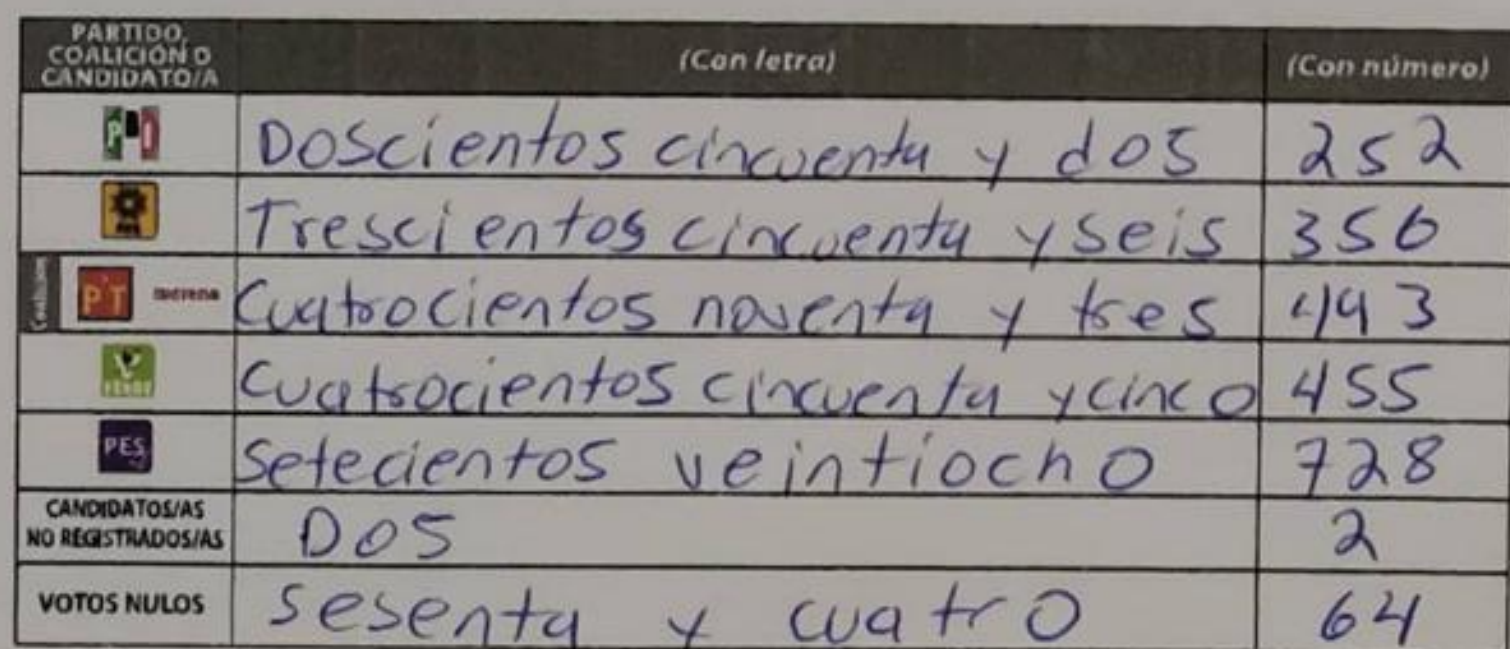 PARTIDO, COALICIÓN O CANDIDATO/A (Con letra) (Con número)
PRI Doscientos cincuenta y dos 252
PRD Trescientos cincuenta y seis 356
Coalición PT morena Cuatrocientos noventa y tres 493
VERDE Cuatrocientos cincuenta y cinco 455
PES Setecientos veintiocho 728
CANDIDATOS/AS NO REGISTRADOS/AS Dos 2
VOTOS NULOS sesenta y cuatro 64